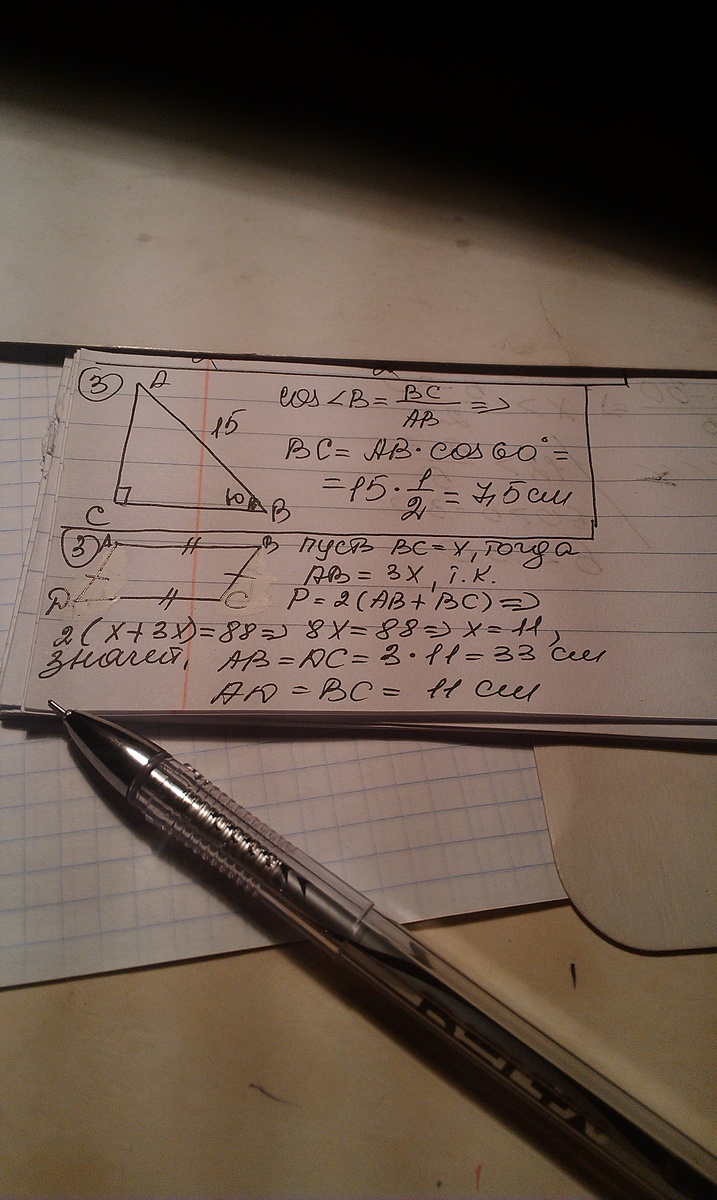 3
A
15
C
B
cos ∠B = BC/AB =>
BC = AB · cos 60° =
= 15 · 1/2 = 7,5 см
3
A B
D C
пусть BC = x, тогда
AB = 3x, т.к.
P = 2(AB + BC) =>
2(x + 3x) = 88 => 8x = 88 => x = 11,
значит, AB = DC = 3 · 11 = 33 см
AD = BC = 11 см
DELTA